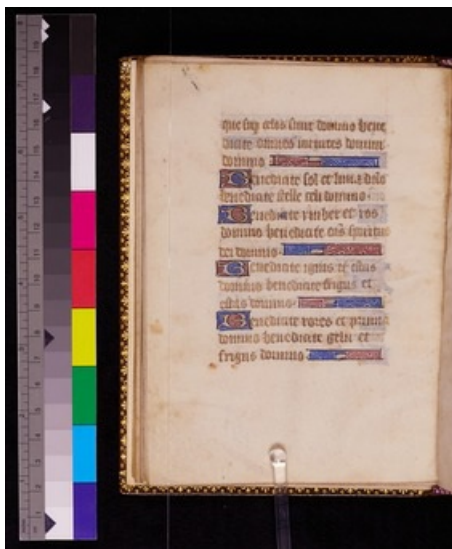 que sup celos sunt domino bene
dicite omnes virtutes domini
domino
Benedicite sol et luna d&no
benedicite stelle celi domino
Benedicite ymber et ros
domino benedicite omnis spiritus
dei domino
Benedicite ignis et estus
domino benedicite frigus et
estas domino
Benedicite rores et pruina
domino benedicite gelu et
frigus domino